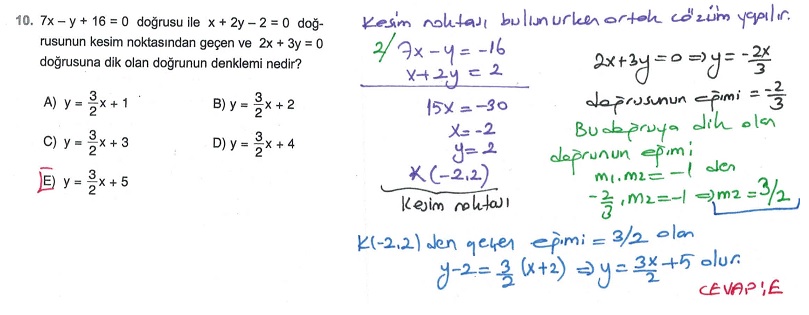 10. 7x – y + 16 = 0 doğrusu ile x + 2y – 2 = 0 doğ-
rusunun kesim noktasından geçen ve 2x + 3y = 0
doğrusuna dik olan doğrunun denklemi nedir?
A) y = 3/2 x + 1
B) y = 3/2 x + 2
C) y = 3/2 x + 3
D) y = 3/2 x + 4
E) y = 3/2 x + 5
Kesim noktası bulunurken ortak çözüm yapılır.
2/ 7x – y = –16
x + 2y = 2
15x = –30
x = –2
y = 2
K(–2,2)
Kesim noktası
2x + 3y = 0 ⇒ y = –2x/3
doğrusunun eğimi = –2/3
Bu doğruya dik olan
doğrunun eğimi
m1.m2 = –1 den
–2/3 . m2 = –1 ⇒ m2 = 3/2
K(–2,2) den geçen eğimi = 3/2 olan
y – 2 = 3/2 (x + 2) ⇒ y = 3x/2 + 5 olur.
CEVAP: E